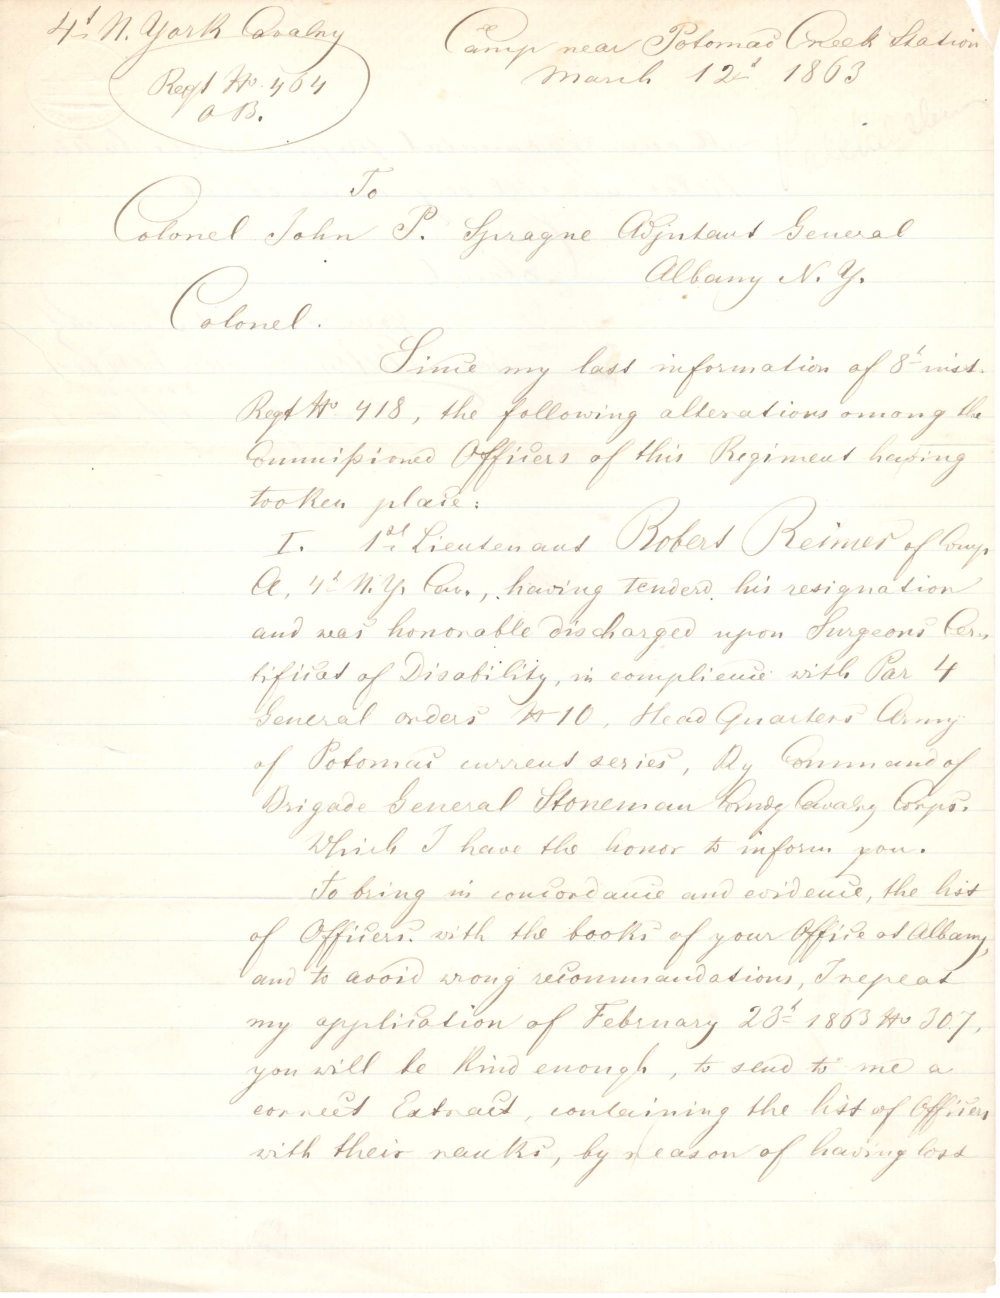 4t N. York Cavalry
Regt No 464
O B.
Camp near Potomac Creek Station
March 12t 1863
To
Colonel John P. Sprague Adjutant General
Albany N. Y.
Colonel.
Since my last information of 8t inst.
Regt No 418, the following alterations among the
Commissioned Officers of this Regiment having
tooken place:
I. 1st Lieutenant Robert Reimer of Comp
A, 4t N.Y. Cav., having tenderd his resignation
and was honorable discharged upon Surgeons Cer-
tificat of Disability, in complience with Par 4
General orders No 10, Head Quarters Army
of Potomac current series, By Command of
Brigade General Stoneman Comdg Cavalry Corps.
Which I have the honor to inform you.
To bring in concordance and evidence, the list
of Officers with the books of your Office at Albany,
and to avoid wrong recommandations, I repeat
my application of February 23t 1863 No 307,
you will be kind enough, to send to me a
correct Extract, containing the list of Officers
with their ranks, by reason of having lost